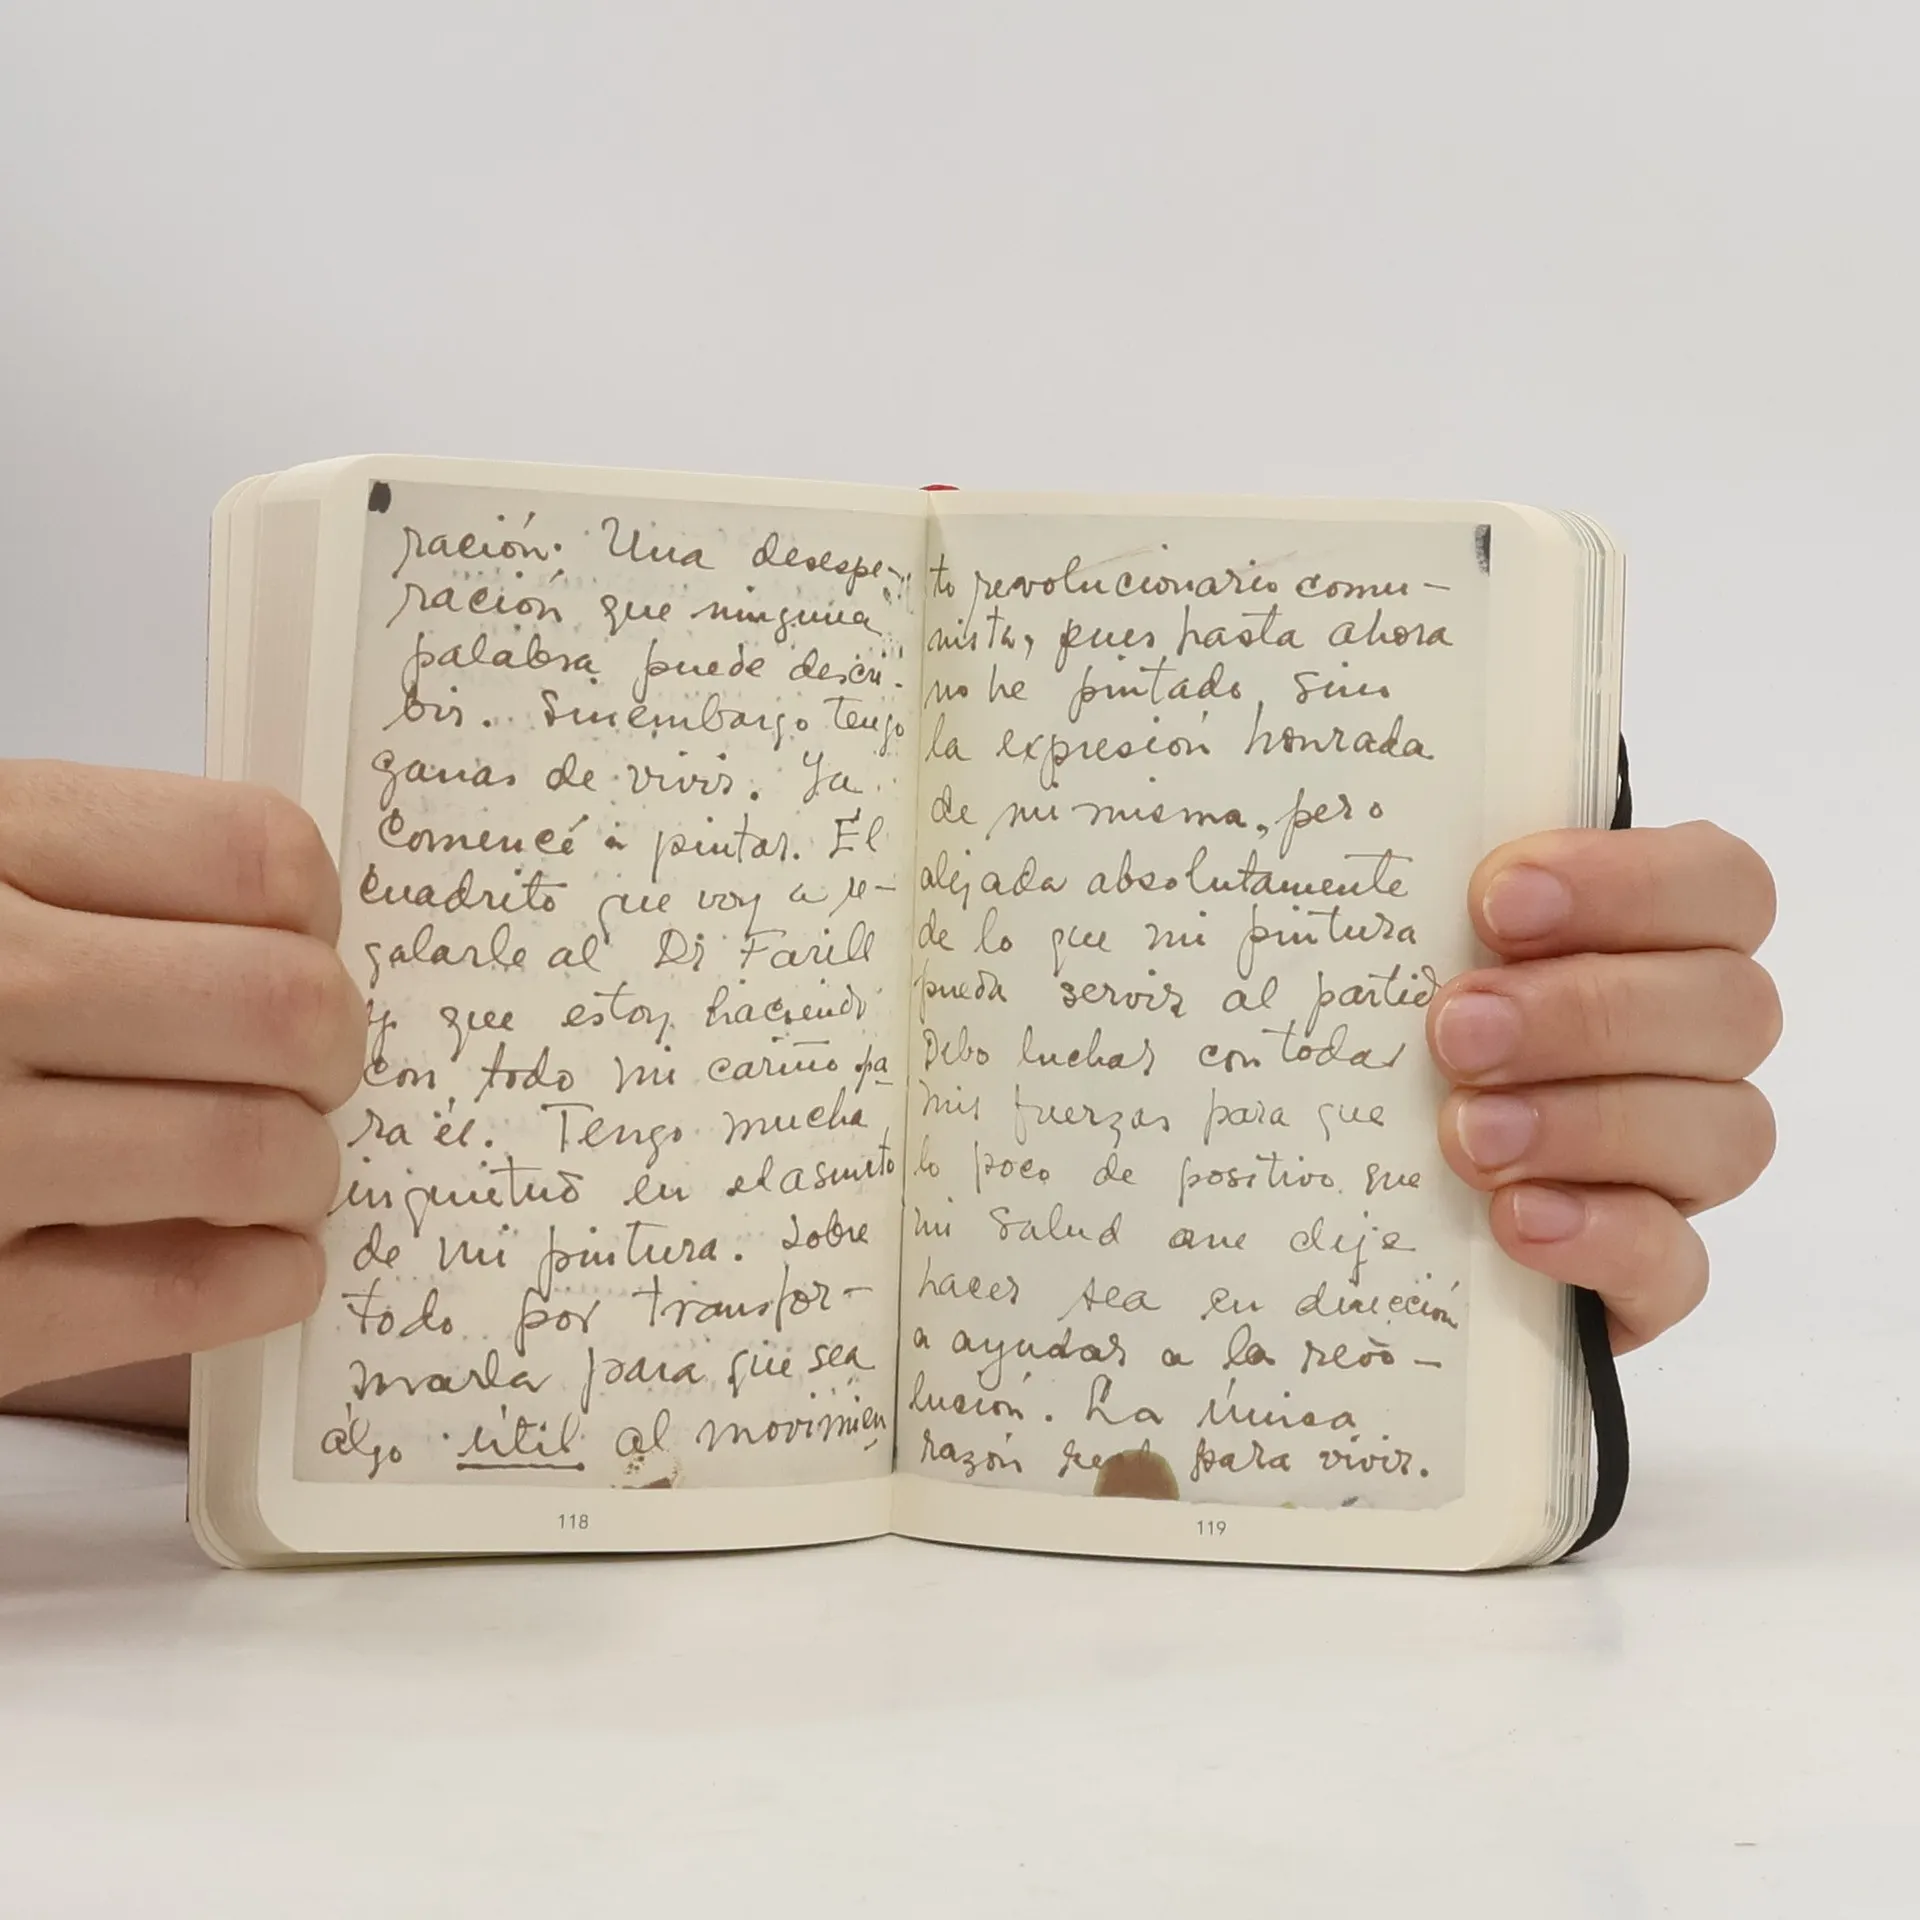 ración. Una desespe-
ración que ninguna
palabra puede descri-
bir. Sinembargo tengo
ganas de vivir. Ya
comencé a pintar. El
cuadrito que voy a re-
galarle al Dr Farill
y que estoy haciendo
con todo mi cariño pa-
ra él. Tengo mucha
inquietud en el asunto
de mi pintura. Sobre
todo por transfor-
marla para que sea
algo útil al movimien
118
to revolucionario comu-
nista, pues hasta ahora
no he pintado sino
la expresión honrada
de mi misma, pero
alejada absolutamente
de lo que mi pintura
pueda servir al partid
Debo luchar con todas
mis fuerzas para que
lo poco de positivo que
mi salud me deje
hacer sea en dirección
a ayudar a la revo-
lución. La única
razón para vivir.
119